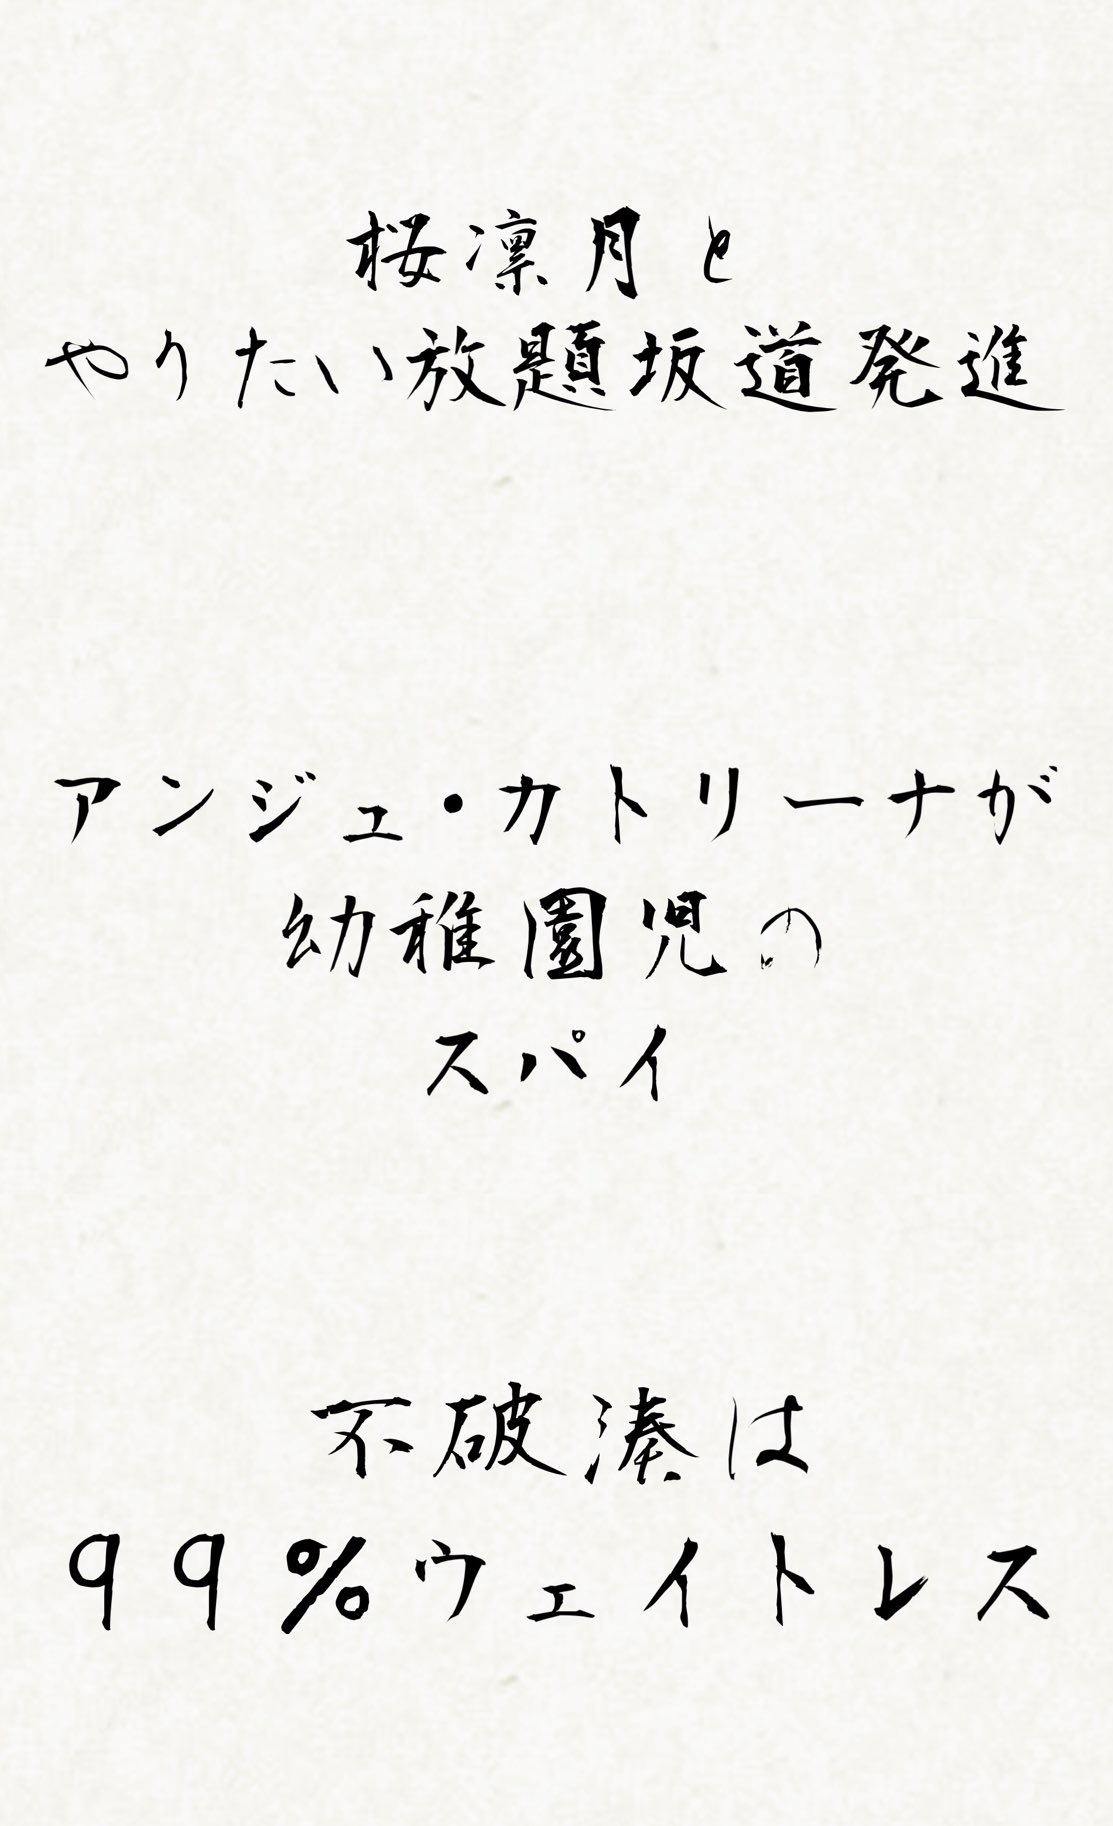 桜凛月と
やりたい放題坂道発進
アンジュ・カトリーナが
幼稚園児の
スパイ
不破湊は
99%ウェイトレス